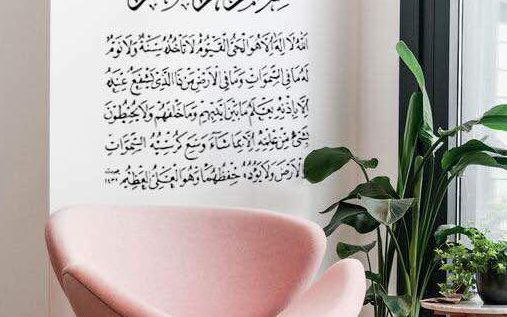 اللهُ لَا إِلَهَ إِلَّا هُوَ الْحَيُّ الْقَيُّومُ لَا تَأْخُذُهُ سِنَةٌ وَلَا نَوْمٌ
لَهُ مَا فِي السَّمَوَاتِ وَمَا فِي الْأَرْضِ مَنْ ذَا الَّذِي يَشْفَعُ عِنْدَهُ
إِلَّا بِإِذْنِهِ يَعْلَمُ مَا بَيْنَ أَيْدِيهِمْ وَمَا خَلْفَهُمْ وَلَا يُحِيطُونَ
بِشَيْءٍ مِنْ عِلْمِهِ إِلَّا بِمَا شَاءَ وَسِعَ كُرْسِيُّهُ السَّمَوَاتِ
وَالْأَرْضَ وَلَا يَؤُدُهُ حِفْظُهُمَا وَهُوَ الْعَلِيُّ الْعَظِيمُ